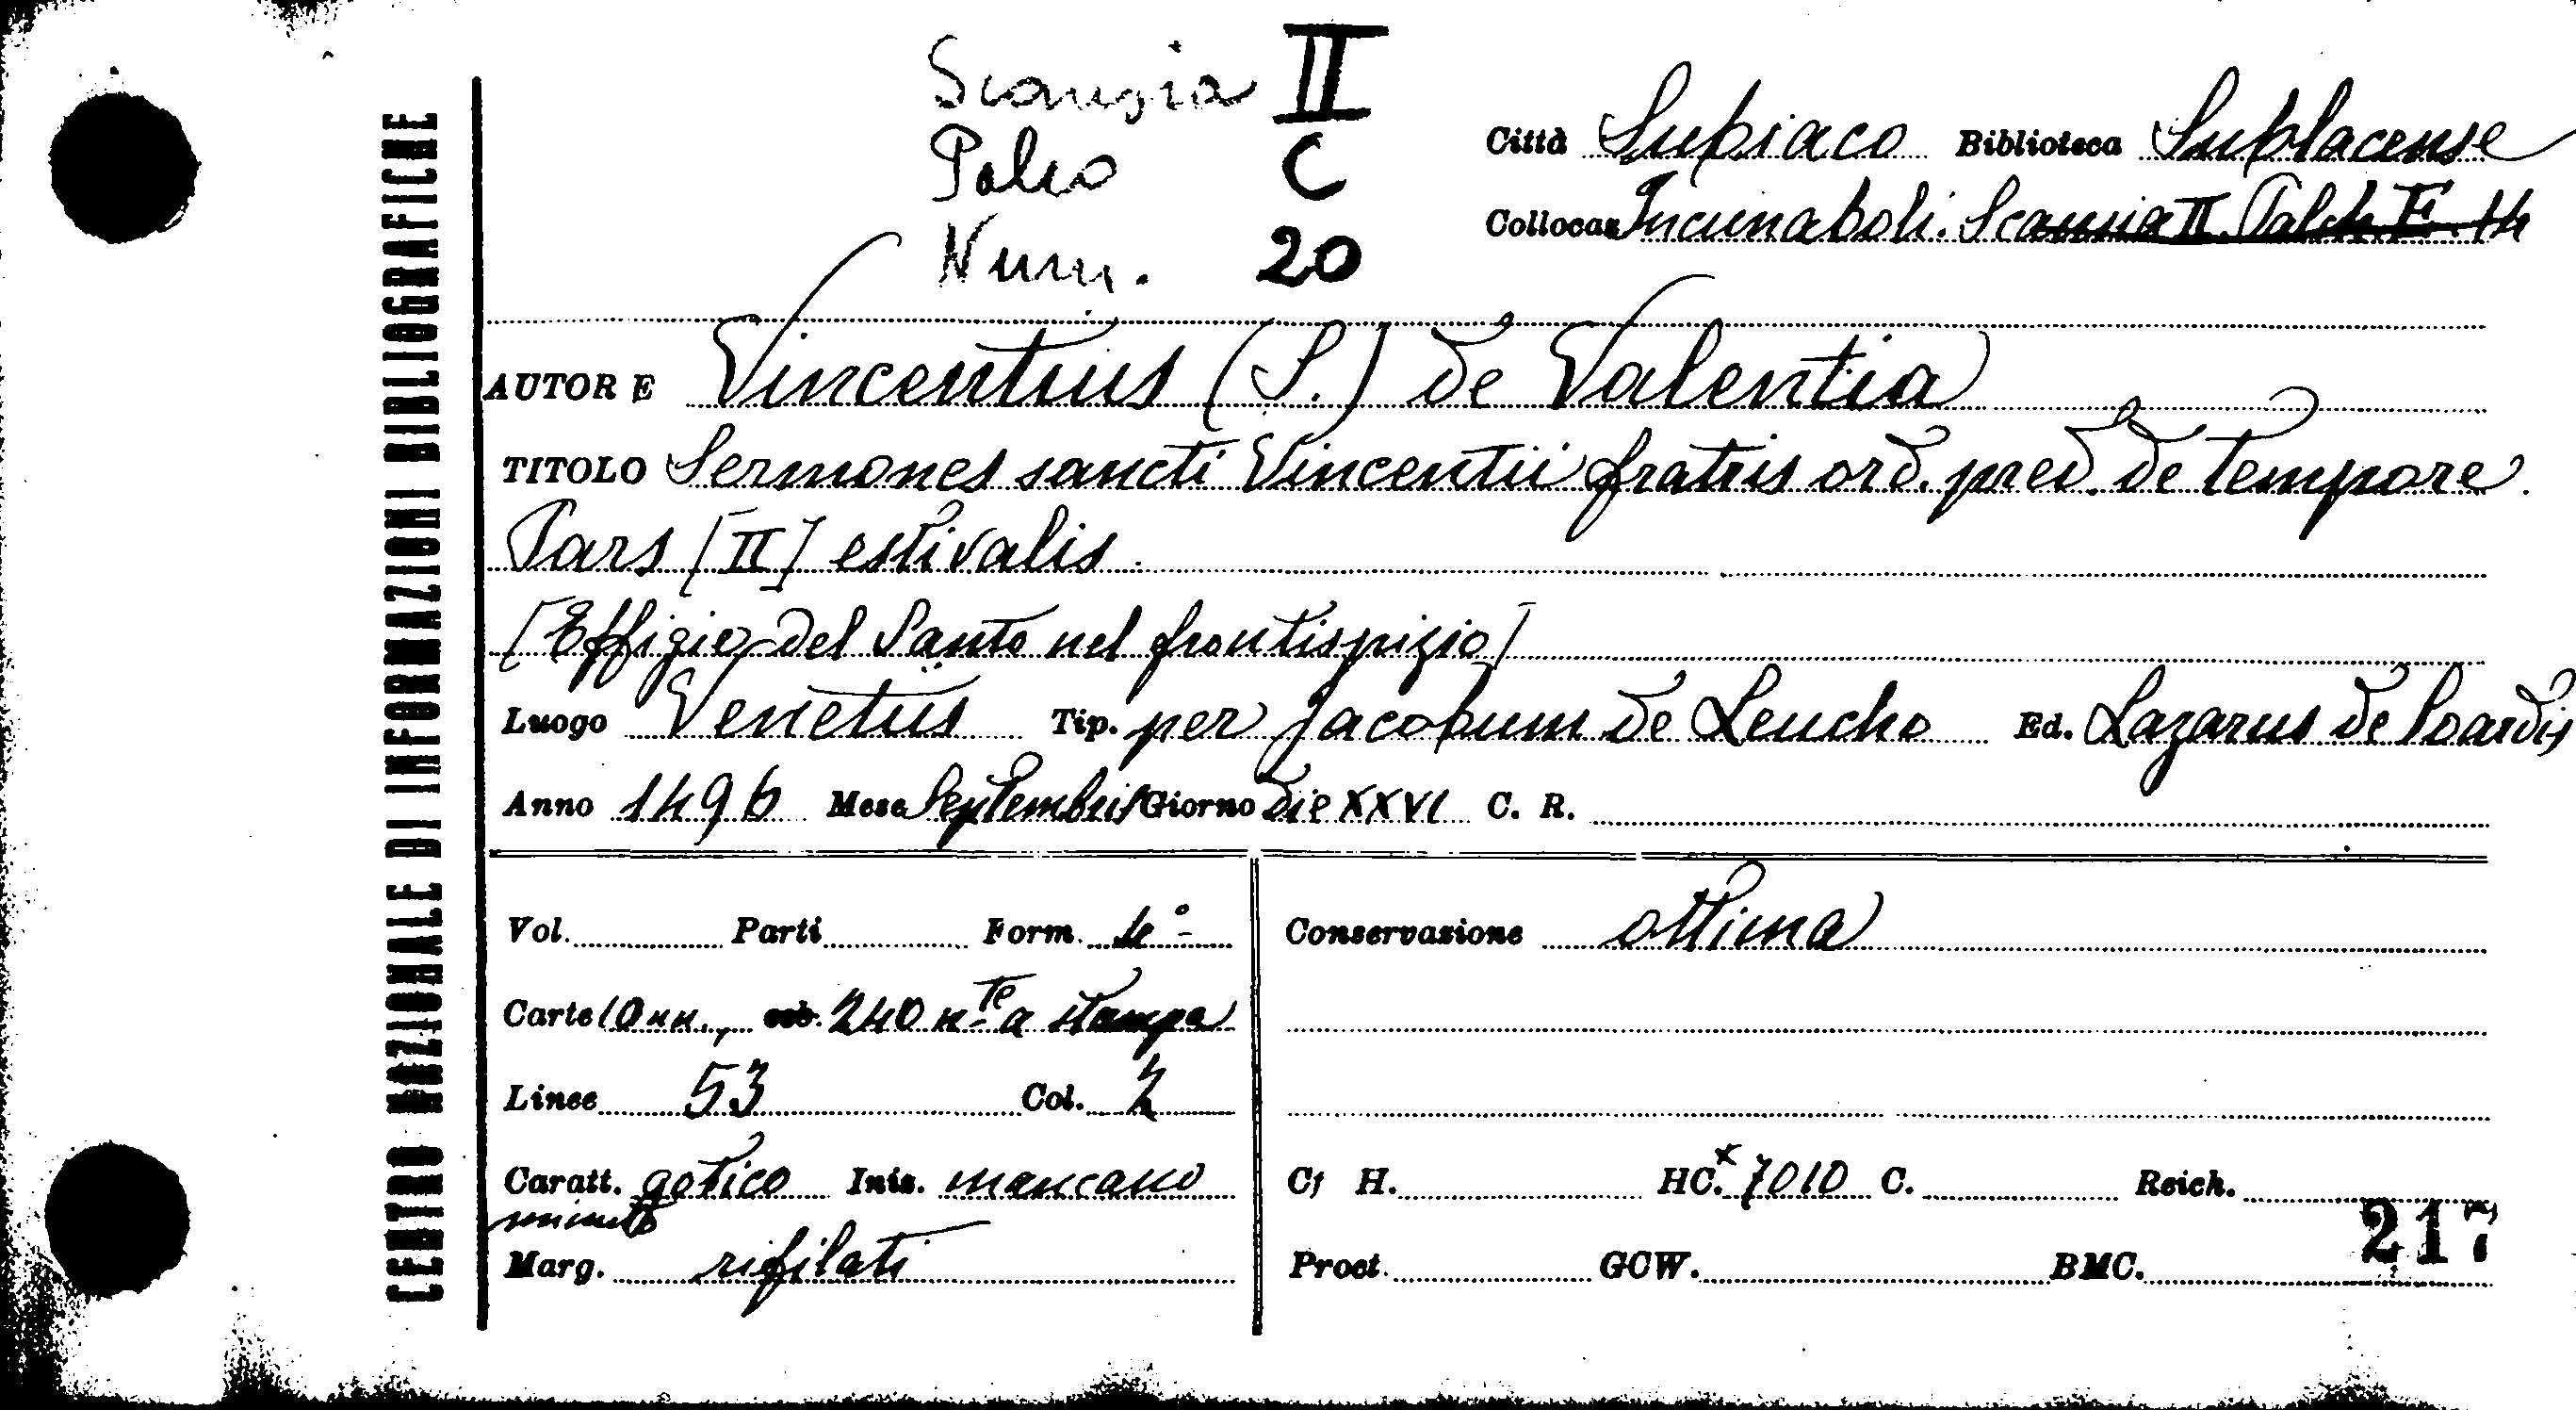 CENTRO NAZIONALE DI INFORMAZIONI BIBLIOGRAFICHE
Scansia II
Palco C
Num. 20
Città Subiaco Biblioteca Sublacense
Collocaz Incunaboli. Scansia II Palch. E. 14
AUTORE Vincentius (S.) de Valentia
TITOLO Sermones sancti Vincentii fratris ord. pred. de tempore.
Pars [II] estivalis.
[Effigie del Santo nel frontispizio]
Luogo Venetiis Tip. per Jacobum de Leucho Ed. Lazarus de Soardis
Anno 1496 Mese Septembris Giorno die XXVI C. R.
Vol. Parti Form. 4°
Conservazione ottima
Carte 10 nn., 240 n.te a stampa
Linee 53 Col. 2
Caratt. gotico Iniz. mancano
minuto
Cf H. HC.x 7010 C. Reich.
Marg. rifilati
Proct. GCW. BMC.
217